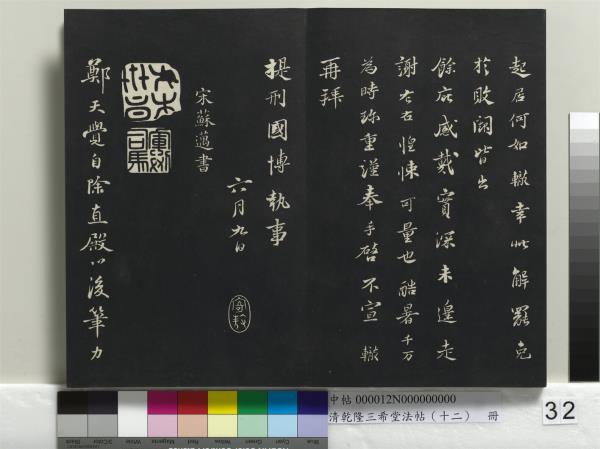 起居何如轍幸此解罷免
於敗闕皆出
餘庇感戴實深未遑走
謝左右惶悚可量也酷暑千万
為時珍重謹奉手啓不宣 轍
再拜
提刑國博執事
六月九日
宋蘇邁書
鄭天覺自除直殿以後筆力
中帖 000012N000000000
清乾隆三希堂法帖(十二) 冊
32